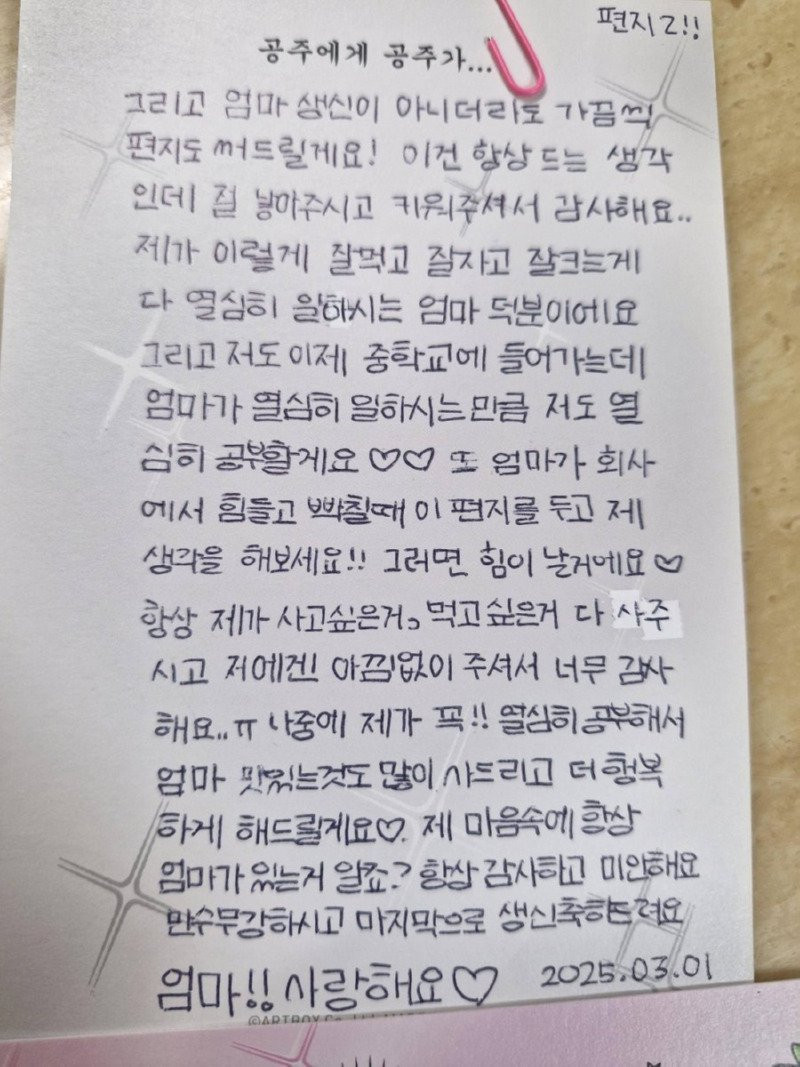 편지2!!
공주에게 공주가...
그리고 엄마 생신이 아니더라도 가끔씩
편지도 써드릴게요! 이건 항상 드는 생각
인데 절 낳아주시고 키워주셔서 감사해요..
제가 이렇게 잘먹고 잘자고 잘크는게
다 열심히 일하시는 엄마 덕분이에요
그리고 저도 이제 중학교에 들어가는데
엄마가 열심히 일하시는만큼 저도 열
심히 공부할게요♡♡ 또 엄마가 회사
에서 힘들고 빡칠때 이 편지를 두고 제
생각을 해보세요!! 그러면 힘이 날거에요♡
항상 제가 사고싶은거, 먹고싶은거 다 사주
시고 저에겐! 아낌없이 주셔서 너무 감사
해요..ㅠ 나중에 제가 꼭!! 열심히 공부해서
엄마 맛있는것도 많이 사드리고 더 행복
하게 해드릴게요♡. 제 마음속에 항상
엄마가 있는거 알죠? 항상 감사하고 미안해요
만수무강하시고 마지막으로 생신축하드려요
엄마!! 사랑해요♡ 2025.03.01